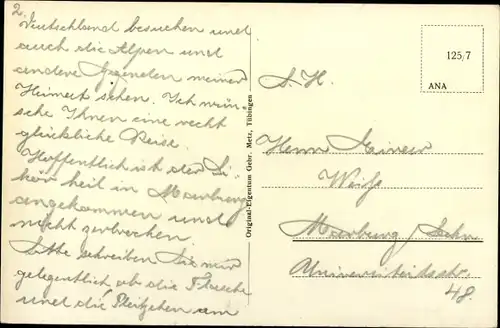 2.
Deutschland besuchen und
auch die Alpen und
andere Gegenden meiner
Heimat sehen. Ich wün-
sche Ihnen eine recht
glückliche Reise.
Hoffentlich ist der Li-
kör heil in Marburg
angekommen und
nicht zerbrochen.
Bitte schreiben Sie mir
gelegentlich ob die Flasche
und die Plätzchen am
Original-Eigentum Gebr. Metz, Tübingen
125/7
ANA
S. H.
Herrn
Marburg/Lahn
Universitätsstr.
48.